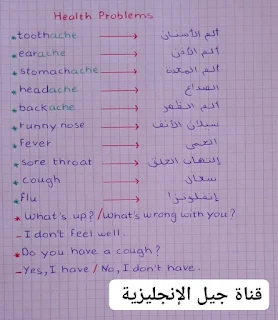 Health Problems
* toothache → ألم الأسنان
* earache → ألم الأذن
* stomachache → ألم المعدة
* headache → الصداع
* backache → ألم الظهر
* runny nose → سيلان الأنف
* fever → الحمى
* sore throat → إلتهاب الحلق
* cough → سعال
* flu → إنفلونزا
* What's up? / What's wrong with you?
- I don't feel well.
* Do you have a cough?
- Yes, I have / No, I don't have.
قناة جيل الإنجليزية